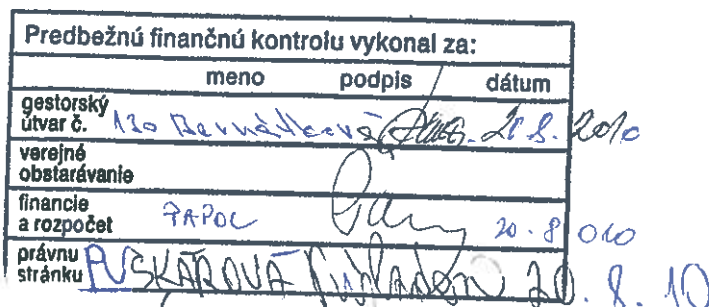 Predbežnú finančnú kontrolu vykonal za:
meno podpis dátum
gestorský
útvar č. 130 Bernátková 20.8.2010
verejné
obstarávanie
financie
a rozpočet 20.8 010
právnu
stránku PUSKÁROVÁ 20.8.10